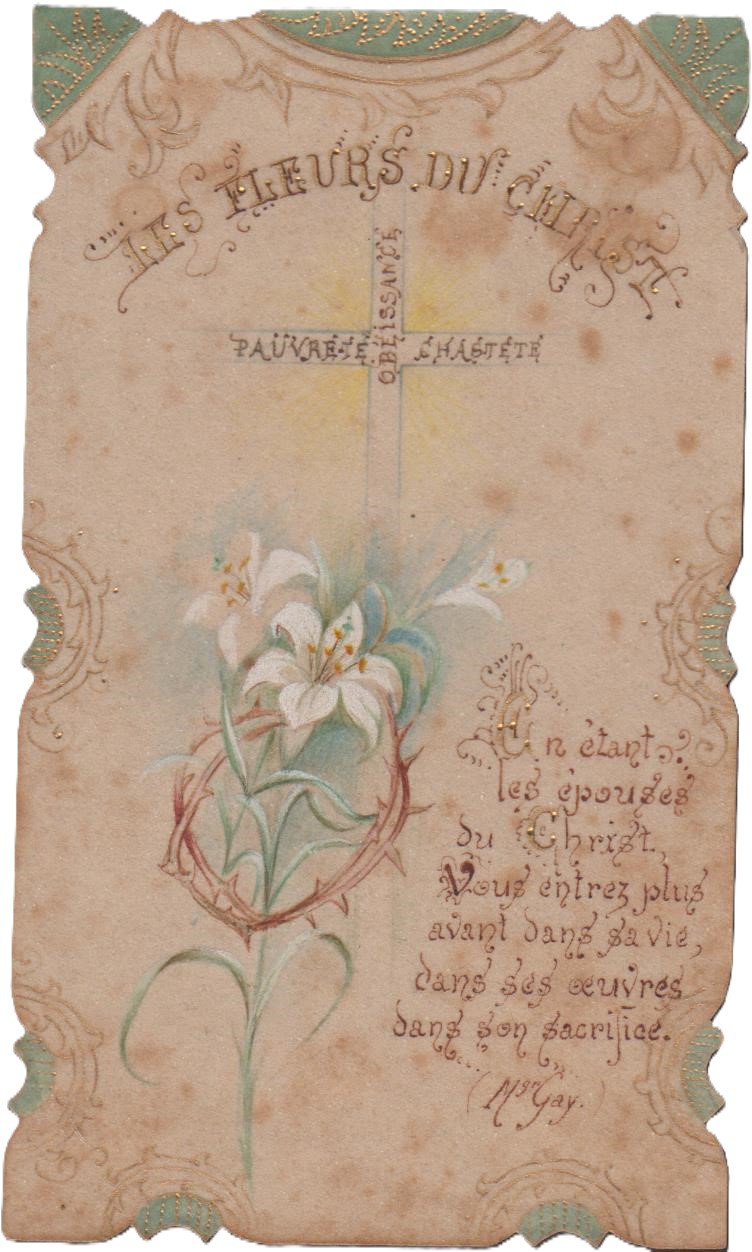 LES FLEURS DU CHRIST
OBEISSANCE
PAUVRETÉ CHASTETÉ
En étant
les épouses
du Christ,
Vous entrez plus
avant dans sa vie,
dans ses œuvres
dans son sacrifice.
(Mgr Gay.)